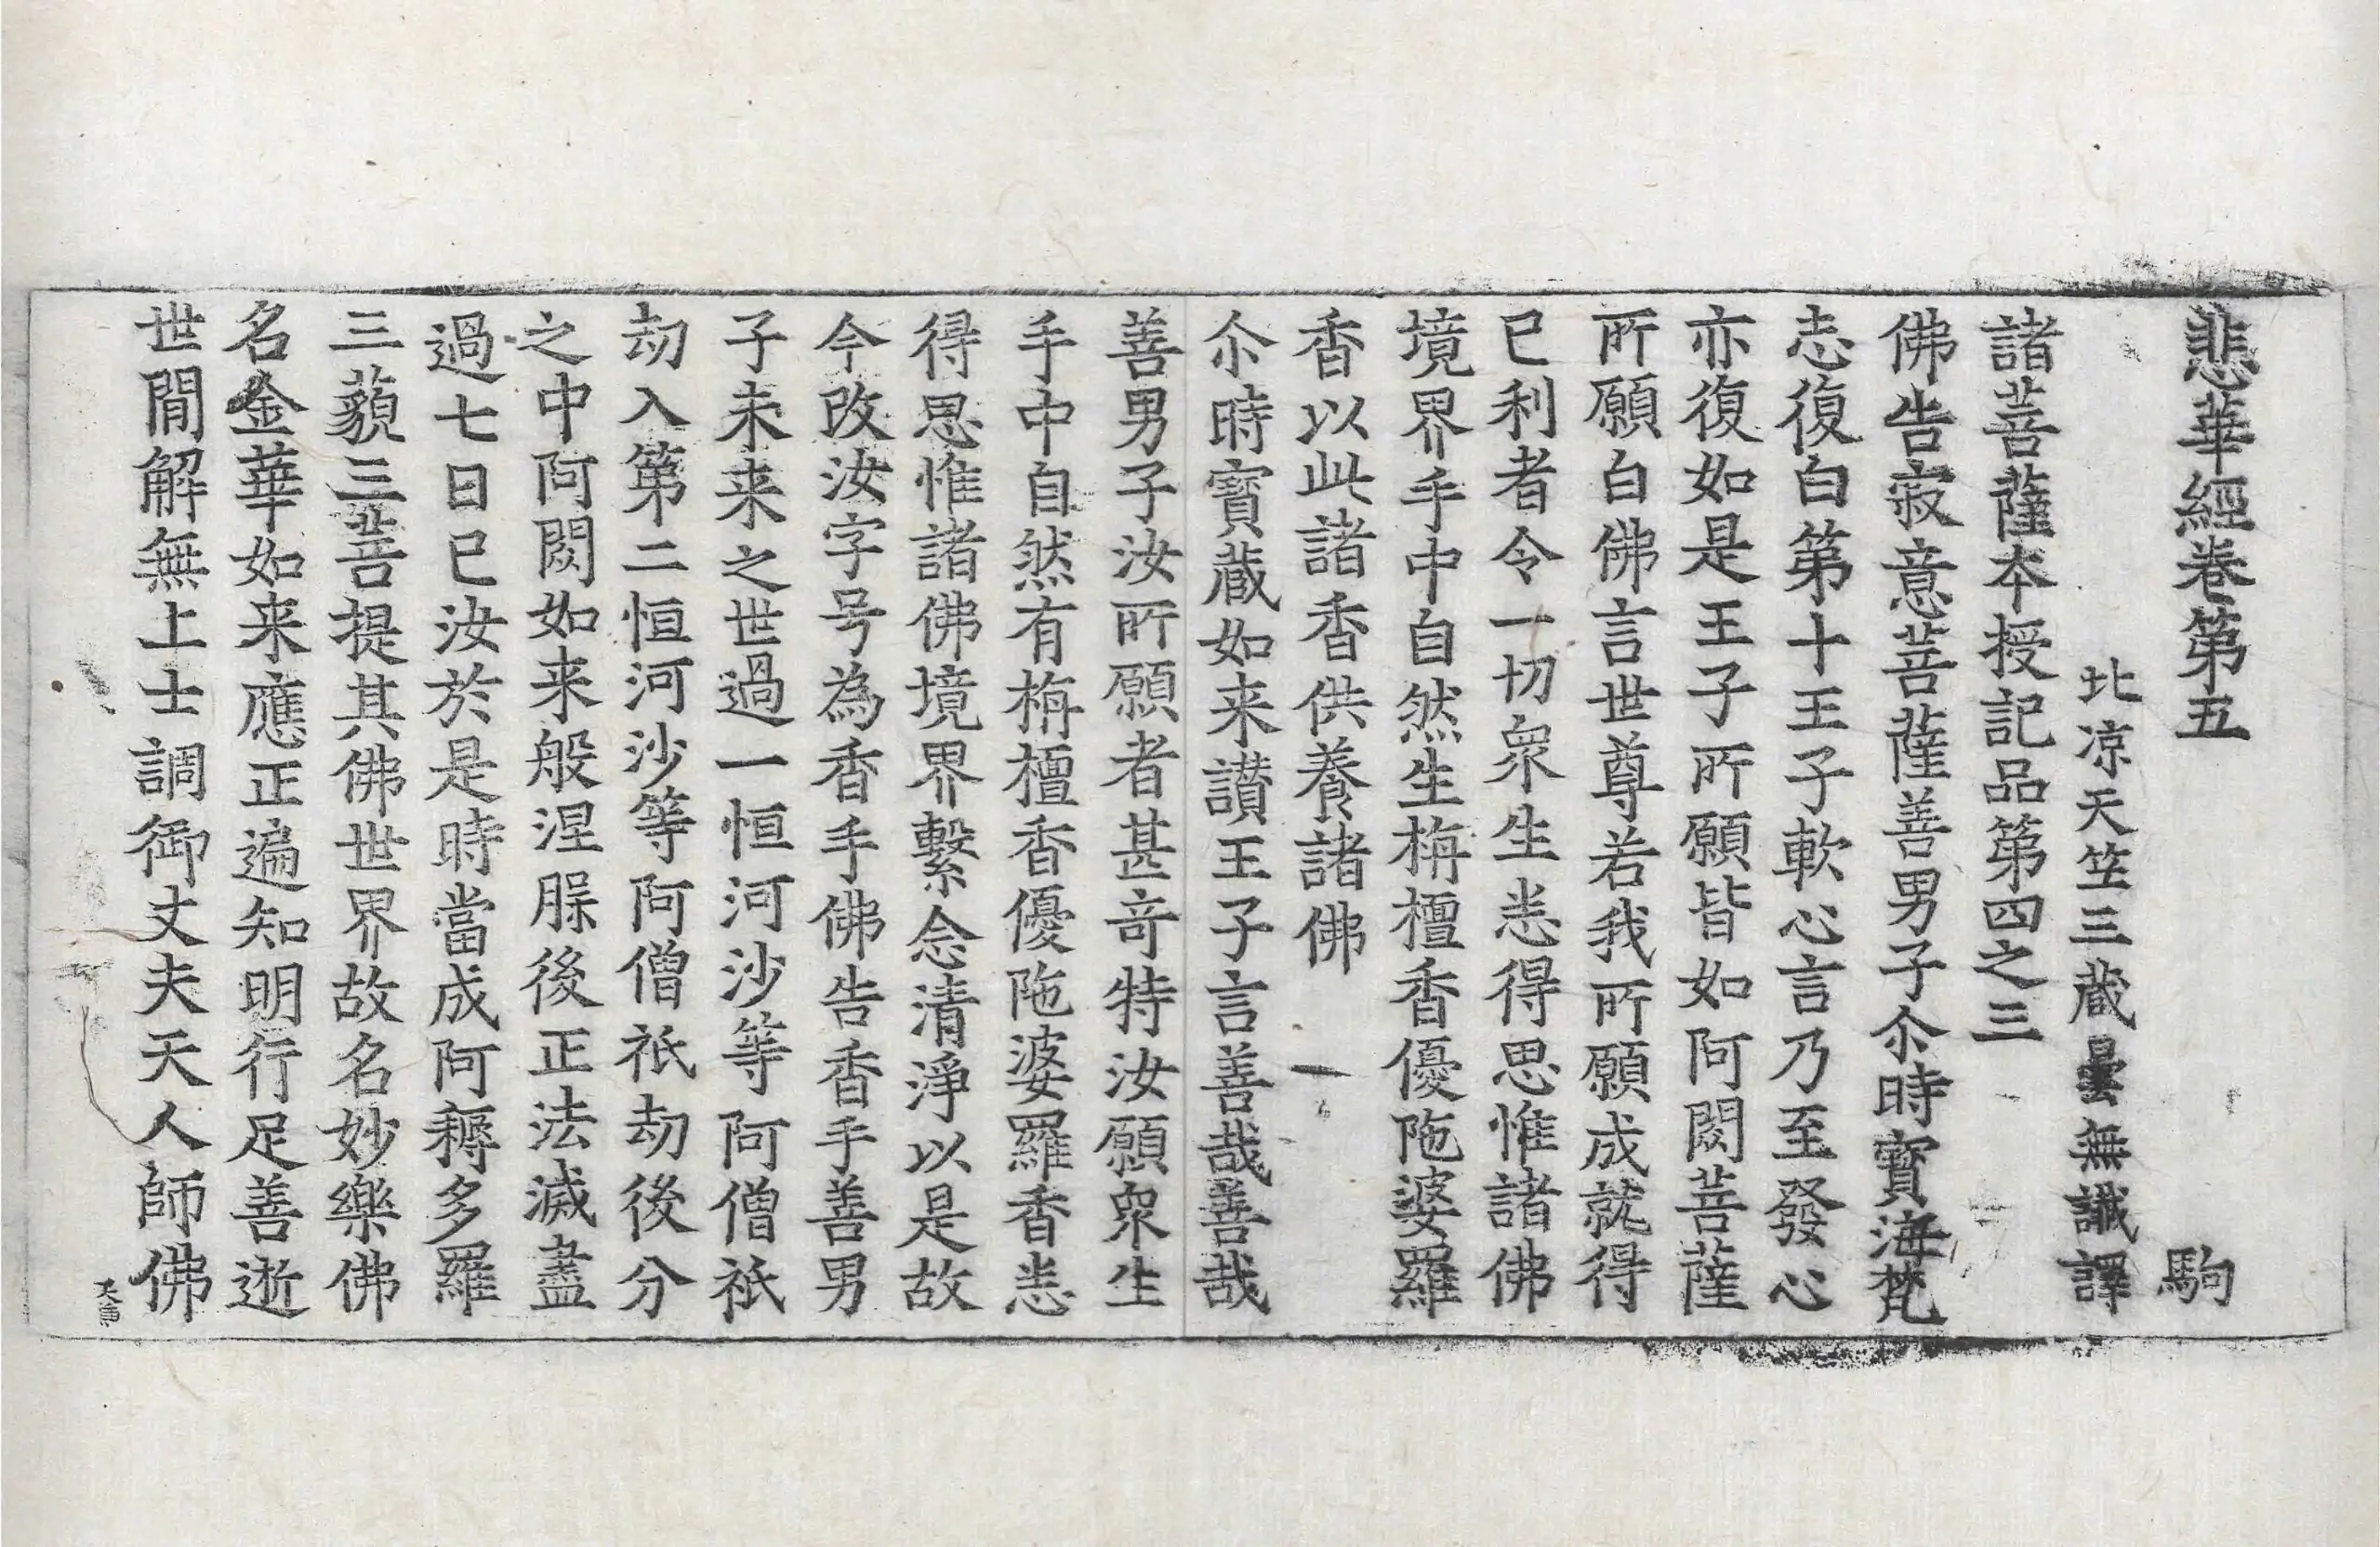 悲華經卷第五 駒
北凉天竺三蔵曇無讖譯
諸菩薩夲授記品第四之三
佛告寂意菩薩善男子尒時寶海梵
志復白第十王子軟心言乃至發心
亦復如是王子所願皆如阿閦菩薩
所願白佛言世尊若我所願成就得
已利者令一切衆生悉得思惟諸佛
境界手中自然生栴檀香優陁婆羅
香以此諸香供養諸佛
尒時寶蔵如来讃王子言善哉善哉
善男子汝所願者甚奇特汝願衆生
手中自然有栴檀香優陁婆羅香悉
得思惟諸佛境界繫念清淨以是故
今改汝字号為香手佛告香手善男
子未来之世過一恒河沙等阿僧祇
劫入第二恒河沙等阿僧祇劫後分
之中阿閦如来般涅脲後正法滅盡
過七日已汝於是時當成阿耨多羅
三藐三菩提其佛世界故名妙樂佛
名金華如来應正遍知明行足善逝
世間解無上士調御丈夫天人師佛